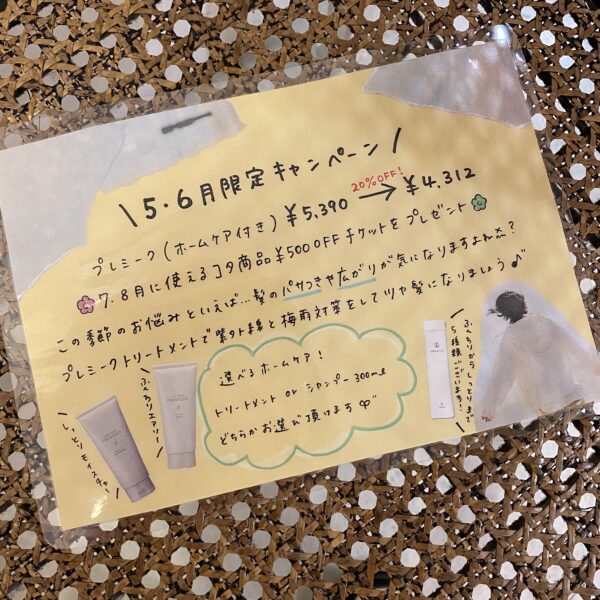 \5・6月限定キャンペーン/
20%OFF!
プレミーク(ホームケア付き)¥5,390→¥4,312
7.8月に使えるコタ商品¥500OFFチケットをプレゼント
この季節のお悩みといえば…髪のパサつきや広がりが気になりますよね?
プレミークトリートメントで紫外線と梅雨対策をしてツヤ髪になりましょう♪
選べるホームケア!
トリートメント or シャンプー 300ml
どちらかお選び頂けます
\しっとりモイスチャー/
\ふんわりエアリー/
ふんわりからしっとりまで
5種類ございます!